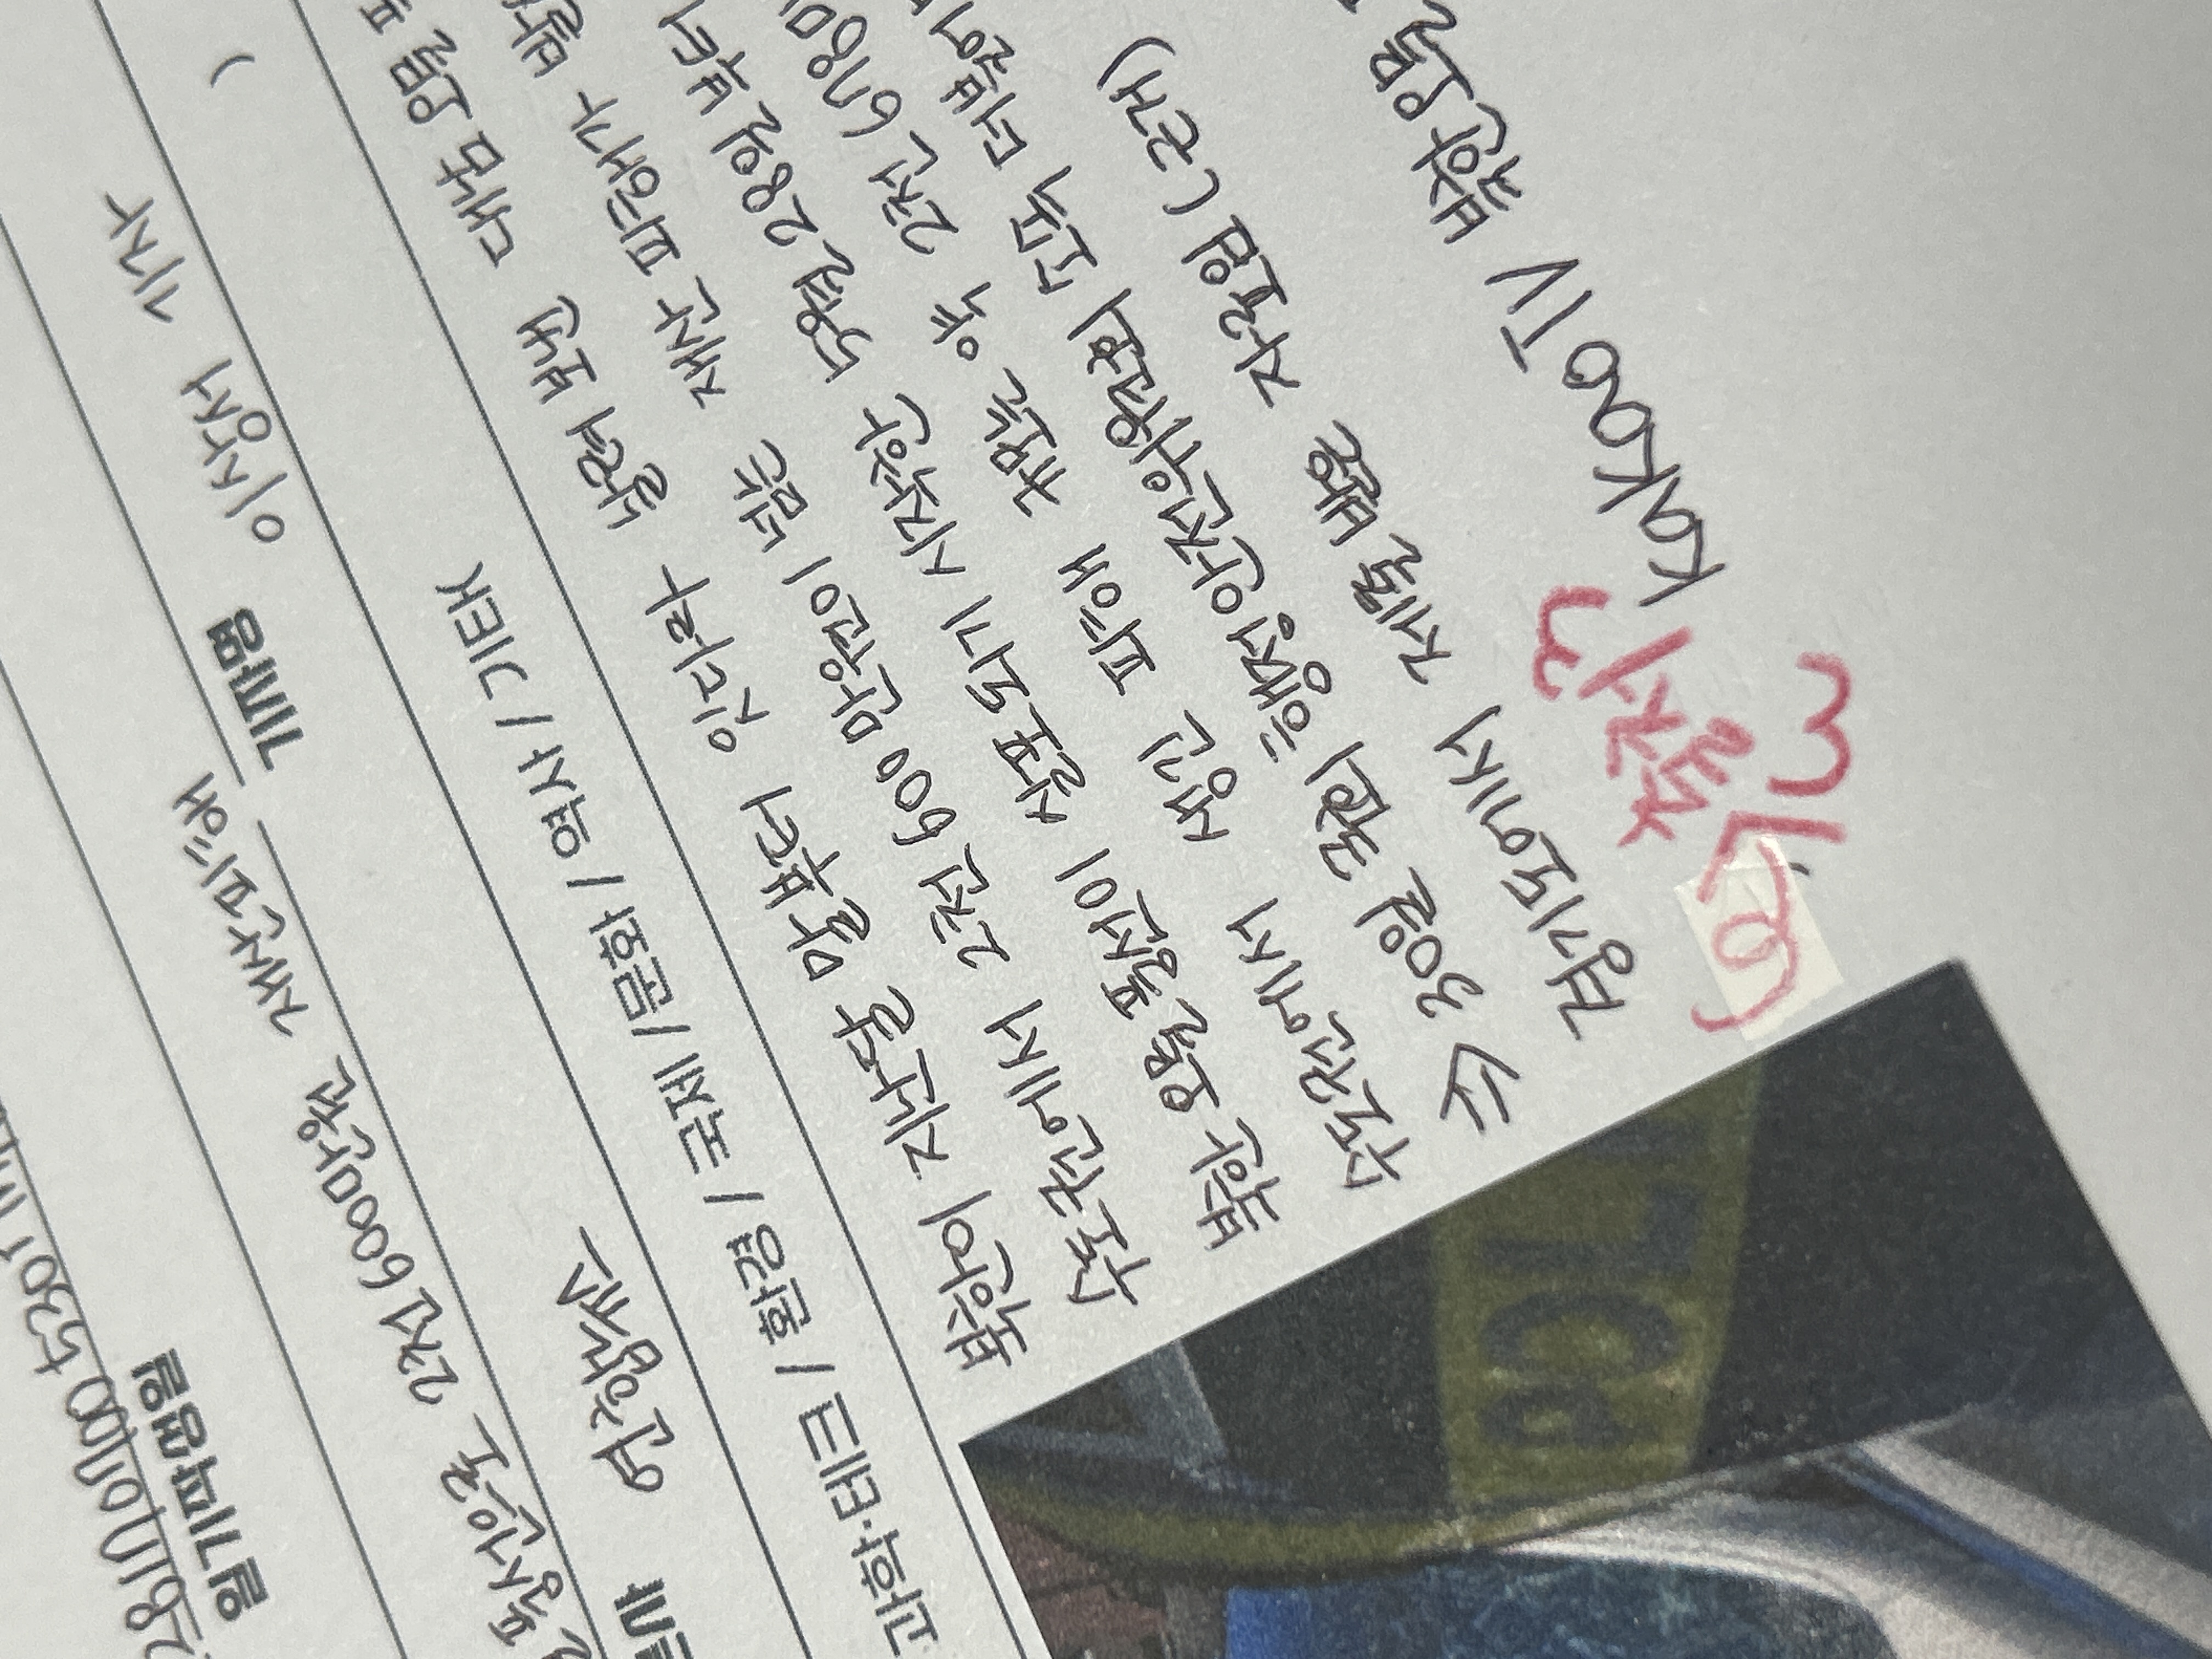 일기작성일
풍선으로 2천 600만원 재산피해
연합뉴스 기자명 이상서 기자
과학·테크 / 환경 / 국제 / 문화 / 역사 / 기타( )
북한이 지난달 말부터 잇다라 날려 보낸 대남 오물
수도권에서 2천 600만원이 넘는 재산 피해가
북한 오물 풍선이 살포되기 시작한 5월 28일 부터
수도권에서 생긴 피해 규모는 약 2천 678만
⇒ 30일 국회 행정안전위원회 소속 더불어
경기도에서 제출 받은 자료임 (근거)
출처
kakaoTV 북한 오물